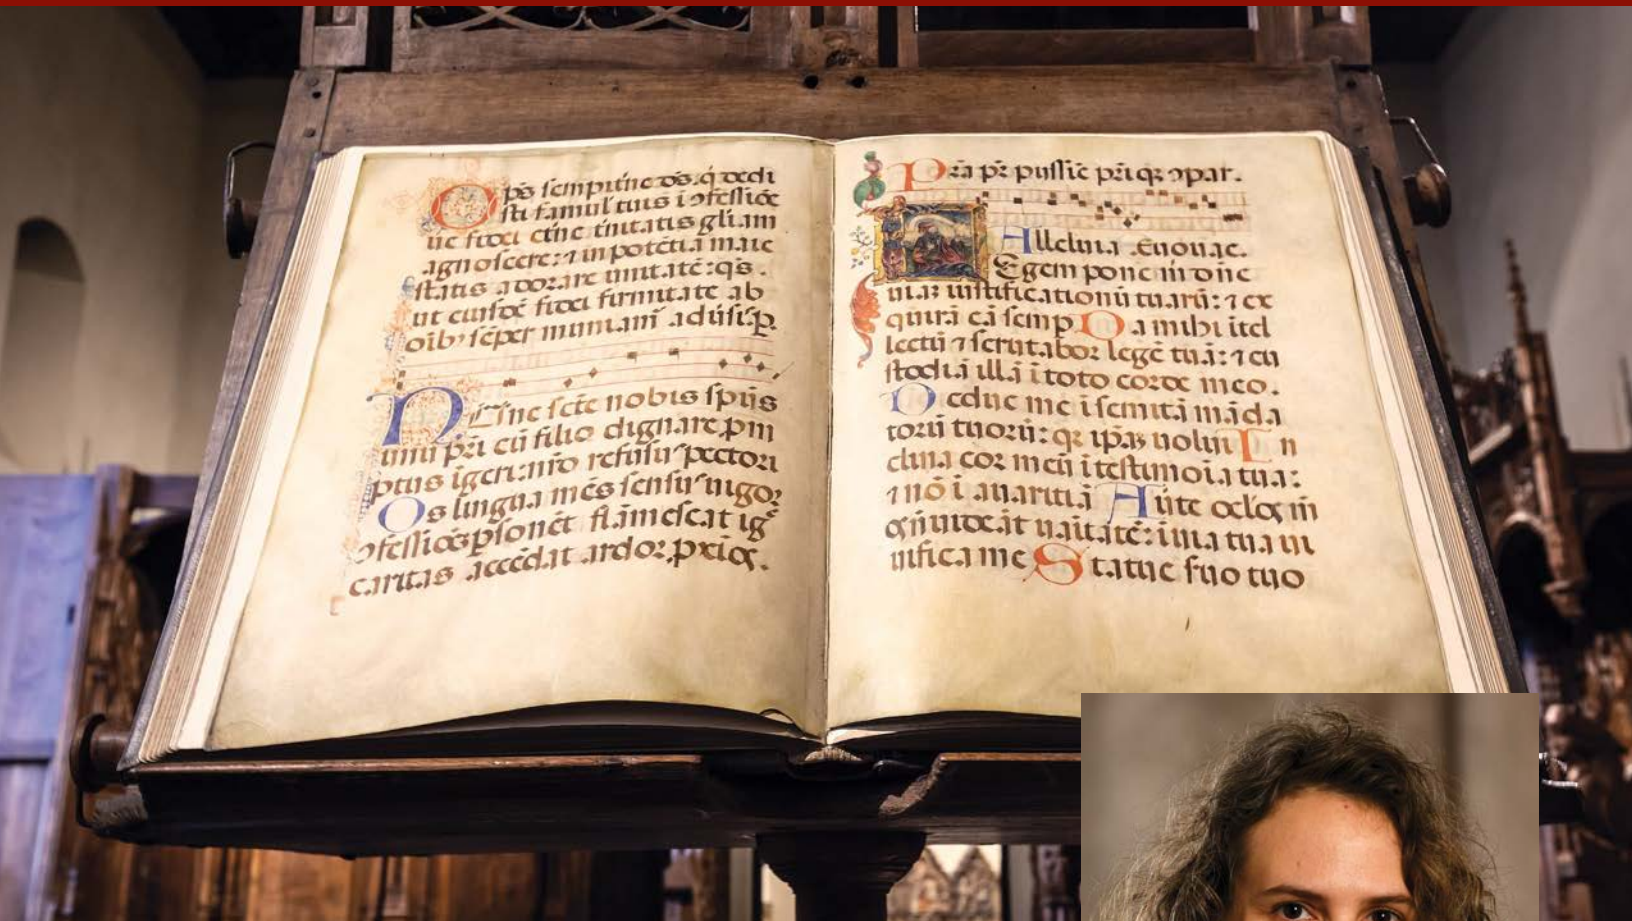 Op̄s sempit̄ne ds̄. q̇ dedi
sti famul tuis i ꝯfessiōe
ue fidei et̄ne t̄nitatis gl̄iam
agnoscere: ⁊ in potētia maie
statis adorare unitatē: qs̄.
ut eiusdē fidei firmitate ab
oīb' sēper
Nūnc sc̄te nobis sp̄us
unū pr̄i cū filio dignare ꝓm
ptus igeri nr̄o refusus pectori
Os lingua mēs sensus uigor
ꝯfessiōe ꝑsonēt flāmescat ig
caritas accēdat ardor ꝓxīos.
Alleluia. Euouae.
Egem pone m done
iustificationū tuarū: ⁊ ex
quirā eā semp Da mihi itel
lectū ⁊ scrutabor legē tuā: ⁊ cu
stodiā illā i toto corde meo.
Deduc me i semitā māda
torū tuorū: qꝫ ipāꝫ uolui In
clina cor meū i testimoīa tua:
⁊ nō i auaritiā oclos m
uanitatē: i uia tua ui
uifica me Statue suo tuo